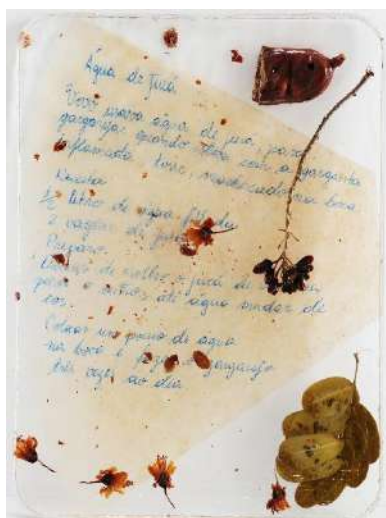 Água de Jucá
Vovó usava água de jucá, para
gargarejar quando tava com a garganta
inflamada, tosse, machucado na boca.
Receita
1/2 litro de água fer
2 vagens de jucá
Preparo.
de molho o jucá de
para o outros até água mudar de
cor.
Colocar um pouco de água
na boca e fazer o gargarejo
três vezes ao dia